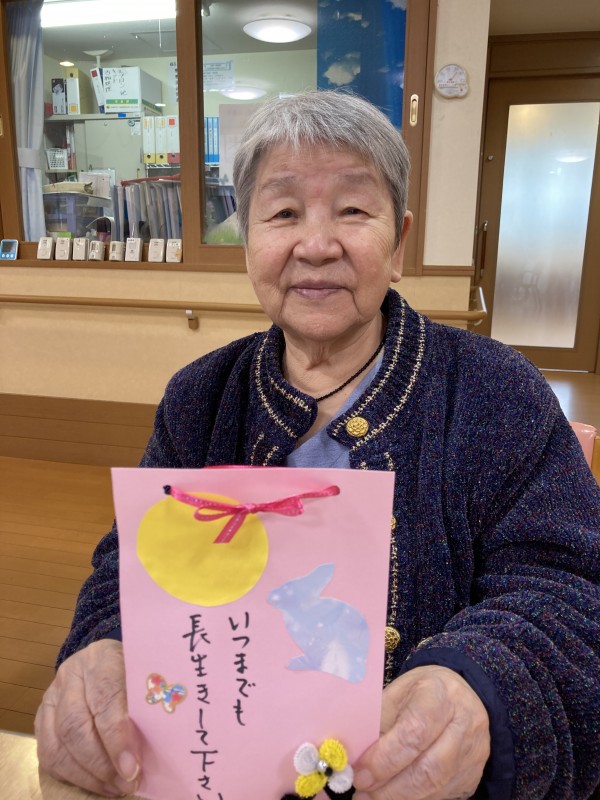 いつまでも
長生きして下さい